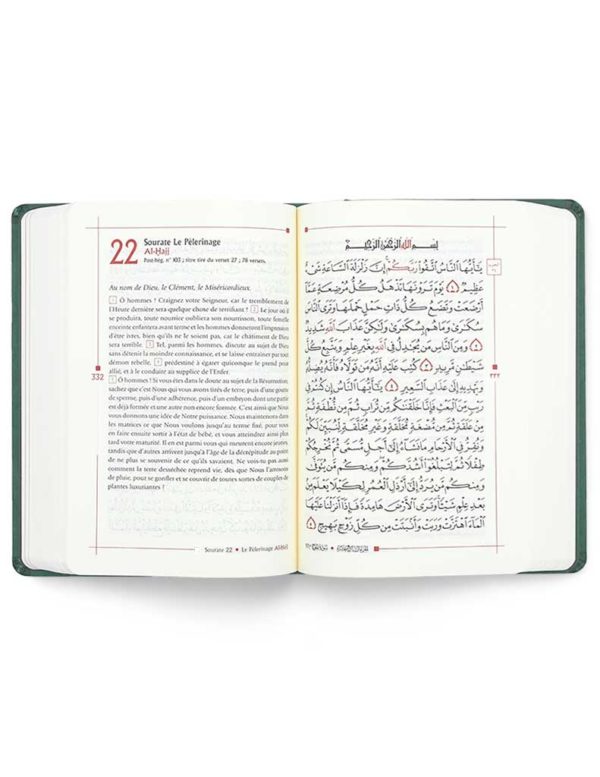 22
Sourate Le Pèlerinage
Al-Ḥajj
Post-hég. n° 103 ; titre tiré du verset 27 ; 78 versets.
Au nom de Dieu, le Clément, le Miséricordieux.
1 Ô hommes ! Craignez votre Seigneur, car le tremblement de
l'Heure dernière sera quelque chose de terrifiant ! 2 Le jour où il
se produira, toute nourrice oubliera son nourrisson, toute femelle
enceinte enfantera avant terme et les hommes donneront l'impression
d'être ivres, bien qu'ils ne le soient pas, car le châtiment de Dieu
sera terrible. 3 Tel, parmi les hommes, discute au sujet de Dieu
sans détenir la moindre connaissance, et se laisse entraîner par tout
démon rebelle, 4 prédestiné à égarer quiconque le prend pour
allié, et à le conduire au supplice de l'Enfer.
5 Ô hommes ! Si vous êtes dans le doute au sujet de la Résurrection,
sachez que c'est Nous qui vous avons tirés de terre, puis d'une goutte
de sperme, puis d'une adhérence, puis d'un embryon dont une partie est
déjà formée et une autre non encore formée. C'est ainsi que Nous
vous donnons une idée de Notre puissance. Nous maintenons dans
les matrices ce que Nous voulons jusqu'au terme fixé, pour vous
en faire ensuite sortir à l'état de bébé, et vous atteindrez ainsi plus
tard votre maturité. Il en est parmi vous qui meurent encore jeunes,
tandis que d'autres arrivent jusqu'à l'âge de la décrépitude au point
de ne plus se souvenir de ce qu'ils savaient. Ne vois-tu pas aussi
comment la terre desséchée reprend vie, dès que Nous l'arrosons
de pluie, pour se gonfler et se couvrir de toutes sortes de couples de
plantes luxuriantes !
332
Sourate 22 • Le Pèlerinage Al-Ḥajj
بِسْمِ اللَّهِ الرَّحْمَٰنِ الرَّحِيمِ
يَٰٓأَيُّهَا النَّاسُ اتَّقُوا۟ رَبَّكُمْ إِنَّ زَلْزَلَةَ السَّاعَةِ شَىْءٌ
عَظِيمٌ ١ يَوْمَ تَرَوْنَهَا تَذْهَلُ كُلُّ مُرْضِعَةٍ عَمَّآ
أَرْضَعَتْ وَتَضَعُ كُلُّ ذَاتِ حَمْلٍ حَمْلَهَا وَتَرَى النَّاسَ
سُكَٰرَىٰ وَمَا هُم بِسُكَٰرَىٰ وَلَٰكِنَّ عَذَابَ اللَّهِ شَدِيدٌ
٢ وَمِنَ النَّاسِ مَن يُجَٰدِلُ فِى اللَّهِ بِغَيْرِ عِلْمٍ وَيَتَّبِعُ كُلَّ
شَيْطَٰنٍ مَّرِيدٍ ٣ كُتِبَ عَلَيْهِ أَنَّهُۥ مَن تَوَلَّاهُ فَأَنَّهُۥ يُضِلُّهُۥ
وَيَهْدِيهِ إِلَىٰ عَذَابِ السَّعِيرِ ٤ يَٰٓأَيُّهَا النَّاسُ إِن كُنتُمْ فِى
رَيْبٍ مِّنَ الْبَعْثِ فَإِنَّا خَلَقْنَٰكُم مِّن تُرَابٍ ثُمَّ مِن نُّطْفَةٍ ثُمَّ
مِنْ عَلَقَةٍ ثُمَّ مِن مُّضْغَةٍ مُّخَلَّقَةٍ وَغَيْرِ مُخَلَّقَةٍ لِّنُبَيِّنَ لَكُمْ
وَنُقِرُّ فِى الْأَرْحَامِ مَا نَشَآءُ إِلَىٰٓ أَجَلٍ مُّسَمًّى ثُمَّ نُخْرِجُكُمْ
طِفْلًا ثُمَّ لِتَبْلُغُوٓا۟ أَشُدَّكُمْ وَمِنكُم مَّن يُتَوَفَّىٰ
وَمِنكُم مَّن يُرَدُّ إِلَىٰٓ أَرْذَلِ الْعُمُرِ لِكَيْلَا يَعْلَمَ مِنۢ
بَعْدِ عِلْمٍ شَيْـًٔا وَتَرَى الْأَرْضَ هَامِدَةً فَإِذَآ أَنزَلْنَا عَلَيْهَا
الْمَآءَ اهْتَزَّتْ وَرَبَتْ وَأَنۢبَتَتْ مِن كُلِّ زَوْجٍۭ بَهِيجٍ ٥
٣٣٢